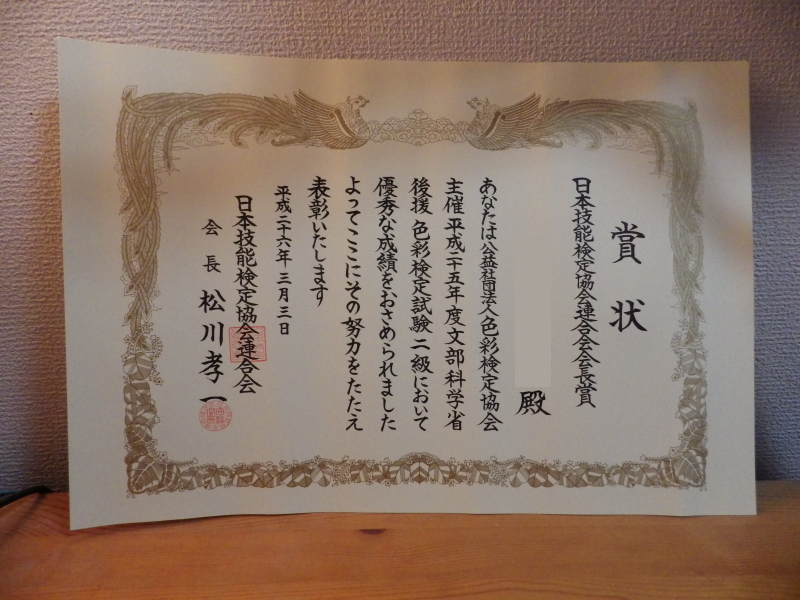 賞状
日本技能検定協会連合会会長賞
殿
あなたは公益社団法人色彩検定協会
主催平成二十五年度文部科学省
後援色彩検定試験二級において
優秀な成績をおさめられました
よってここにその努力をたたえ
表彰いたします
平成二十六年三月三日
日本技能検定協会連合会
会長 松川孝一